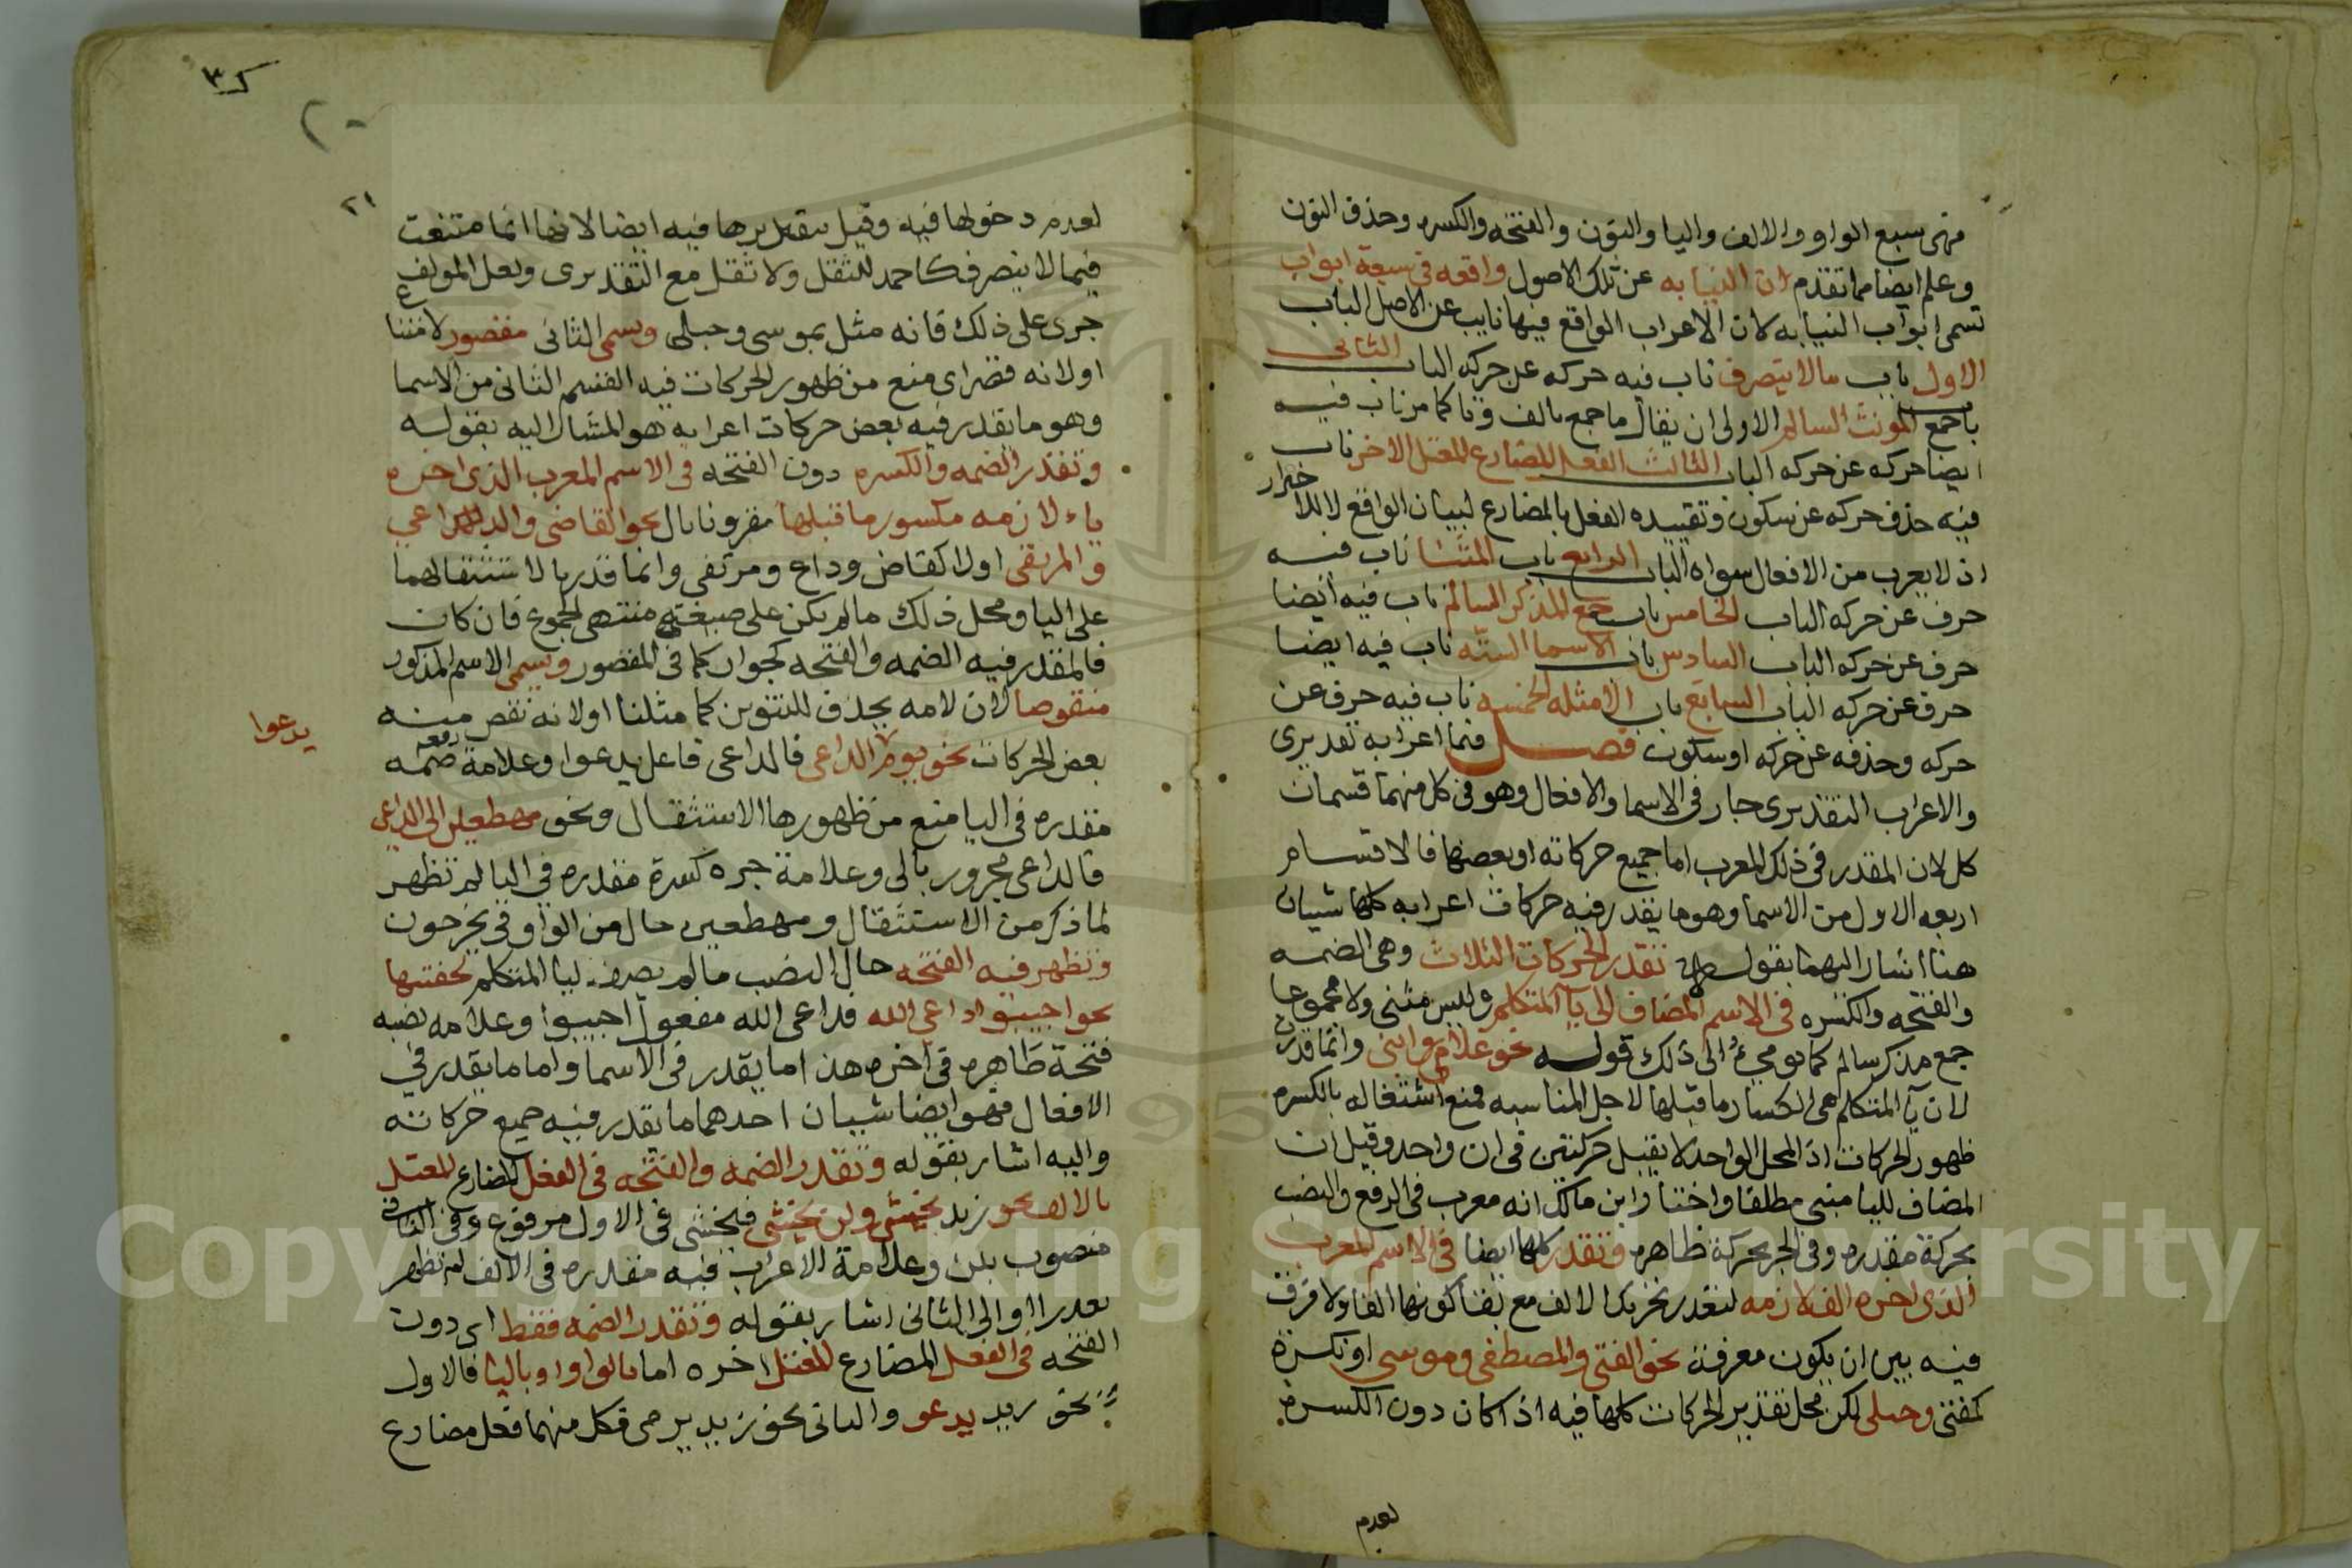 فهي سبع الواو والالف واليا والنون والفتحه والكسره وحذف النون
وعلم ايضا مما تقدم ان النيابه عن تلك الاصول واقعه في سبعة ابواب
تسمى ابواب النيابه لان الاعراب الواقع فيها نايب عن الاصل الباب
الاول باب مالا ينصرف ناب فيه حركه عن حركه الباب الثانى
باب جمع المونث السالم الاولى ان يقال ما جمع بالف وتا كما مر ناب فيه
ايضا حركه عن حركه الباب الثالث الفعل المضارع المعتل الاخر ناب
فيه حذف حركه عن سكون وتقييده الفعل بالمضارع لبيان الواقع لا للاحتراز
اذ لا يعرب من الافعال سواه الباب الرابع باب المثنا ناب فيه
حرف عن حركه الباب الخامس باب جمع المذكر السالم ناب فيه ايضا
حرف عن حركه الباب السادس باب الاسما الستة ناب فيه ايضا
حرف عن حركه الباب السابع باب الامثله الخمسه ناب فيه حرف عن
حركه وحذفه عن حركه او سكون فصل فيما اعرابه تقديرى
والاعراب التقديرى جار فى الاسما والافعال وهو فى كل منهما قسمان
كل لان المقدر فى ذلك المعرب اما جميع حركاته او بعضها فالاقسام
اربعه الاول من الاسما وهو ما يقدر فيه حركات اعرابه كلها شيان
هنا اشار اليهما بقوله تقدر الحركات الثلاث وهى الضمه
والفتحه والكسره فى الاسم المضاف الى يآ المتكلم وليس مثنى ولا مجموعا
جمع مذكر سالم كما يومى الى ذلك قوله نحو غلامى وابنى وانما قدرت
لان يآ المتكلم هى انكسار ما قبلها لاجل المناسبه فمنع اشتغاله بالكسره
ظهور الحركات اذ المحل الواحد لا يقبل حركتين فى ان واحد وقيل ان
المضاف لليا مبنى مطلقا واختار ابن مالك انه معرب فى الرفع والنصب
بحركة مقدره وفى الجر بحركة ظاهره وتقدر كلها ايضا فى الاسم المعرب
الذى اخره الف لازمه لتعذر تحريك الالف مع بقا كونها الفا ولا فرق
فيه بين ان يكون معرفة نحو الفتى والمصطفى وموسى او نكرة
كفتى وحبلى لكن محل تقدير الحركات كلها فيه اذا كان دون الكسره
لعدم
ك ٣
٢٠
٢١
لعدم دخولها فيه وقيل بتقديرها فيه ايضا لانها انما متنعت
فيما لا ينصرف كاحمد للثقل ولا ثقل مع التقديرى ولعل المولف
جرى على ذلك فانه مثل بموسى وحبلى ويسمى الثانى مقصورا لامتناع
او لانه قصر اى منع من ظهور الحركات فيه القسم الثانى من الاسما
وهو ما يقدر فيه بعض حركات اعرابه هو المشار اليه بقوله
وتقدر الضمه والكسره دون الفتحه فى الاسم المعرب الذى اخره
ياء لازمه مكسور ما قبلها مقرونا بال نحو القاضى والداعي
والمرتقى اولا كقاض وداع ومرتقى وانما قدرتا لاستثقالهما
على اليا ومحل ذلك ما لم يكن على صيغة منتهى الجموع فان كان
فالمقدر فيه الضمه والفتحه كجوار كما فى المقصور ويسمى الاسم المذكور
منقوصا لان لامه يحذف للتنوين كما مثلنا او لانه نقص منه
بعض الحركات نحو يوم يدع الداعى فالداعى فاعل يدعوا وعلامة رفعه ضمه
يدعوا
مقدره فى اليا منع من ظهورها الاستثقال ونحو مهطعين الى الداعى
فالداعى مجرور بالى وعلامة جره كسرة مقدره فى اليا لم تظهر
لما ذكر من الاستثقال ومهطعين حال من الواو فى يخرجون
وتظهر فيه الفتحه حال النصب ما لم يضف ليا المتكلم لخفتها
نحو اجيبوا داعى الله فداعى الله مفعول اجيبوا وعلامه نصبه
فتحة ظاهره فى اخره هذا ما يقدر فى الاسما واما ما يقدر في
الافعال فهو ايضا شيان احدهما ما يقدر فيه جميع حركاته
واليه اشار بقوله وتقدر الضمه والفتحه فى الفعل المضارع المعتل
بالالف نحو زيد يخشى ولن يخشى فيخشى فى الاول مرفوع وفى الثانى
منصوب بلن وعلامة الاعراب فيه مقدره فى الالف لم تظهر
تعذرا والى الثانى اشار بقوله وتقدر الضمه فقط اى دون
الفتحه فى الفعل المضارع المعتل اخره اما بالواو او باليا فالاول
نحو زيد يدعو والثانى نحو زيد يرمى فكل منهما فعل مضارع
Copyright © King Saud University